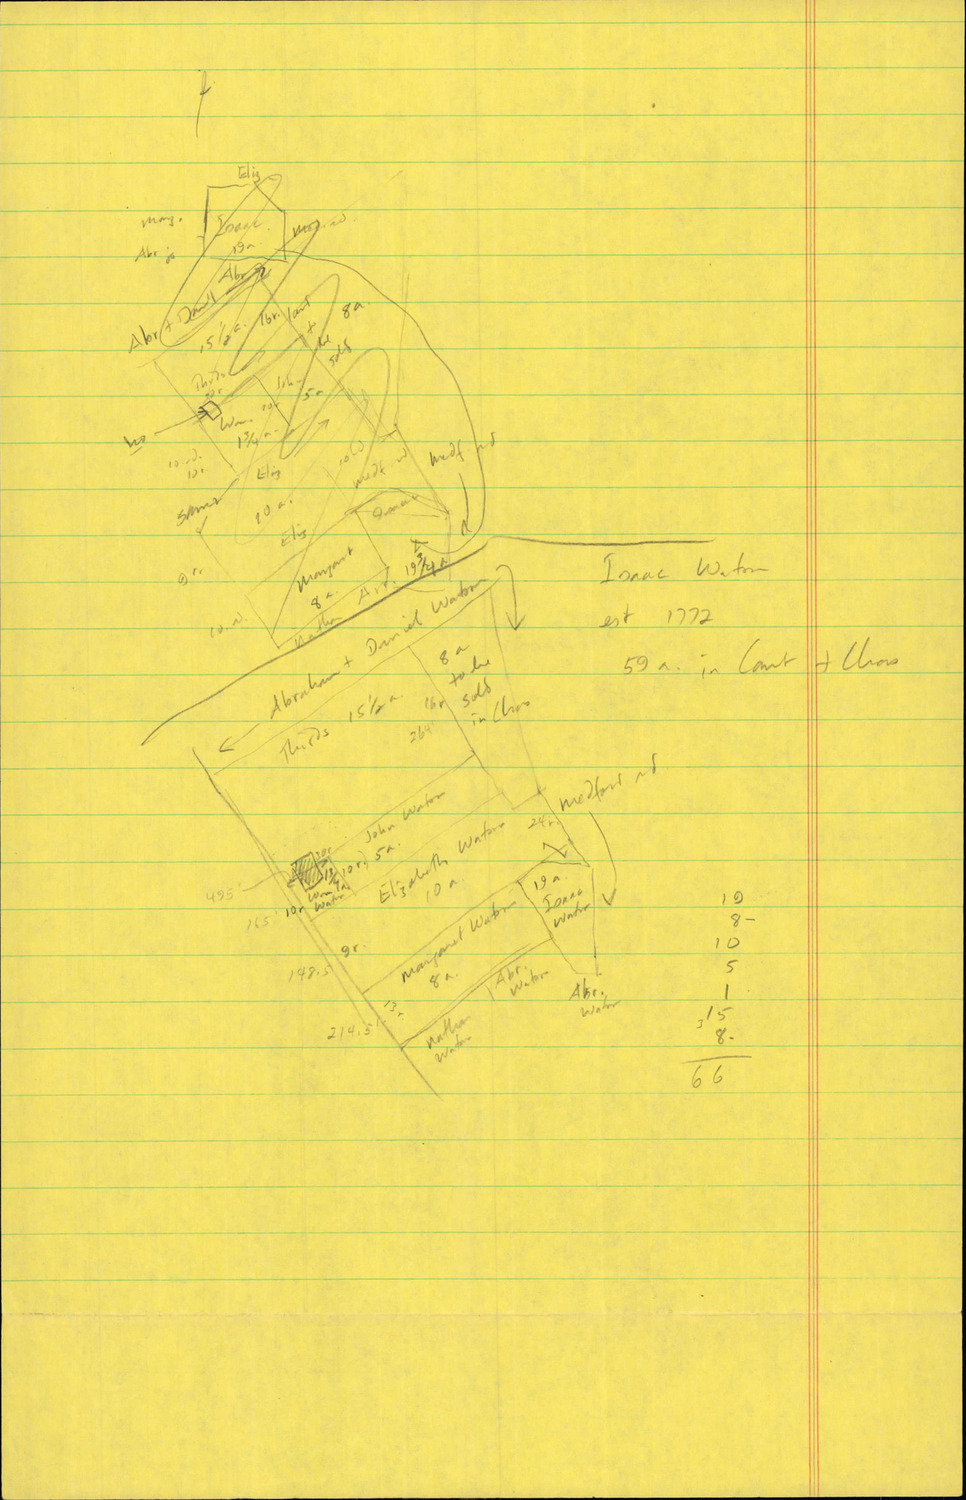 Eliz
Marg.
Isaac
19 a.
Abr
Abr
Abr + Danl
15 1/2 a.
8 a.
to be
sold
Thirds
John
5 a.
Wm.
1 3/4 a.
ho
Eliz
10 a.
sold
Medf. rd
Medf. rd
same
Eliz
Isaac
Margaret
8 a.
9 r.
Nathan
Abr.
19 3/4 a.
Isaac Watson
est 1772
59 a. in Camt + Chas
Abraham + Daniel Watson
8 a
to be
sold
in Chas
Thirds 15 1/2 a.
16 r.
264'
John Watson
10 r. 5 a.
Medford rd
24 r.
Elizabeth Watson
10 a.
Wm
Watson
10 r.
495'
165'
19 a.
Isaac
Watson
9 r.
148.5
Margaret Watson
8 a.
Abr.
Watson
Abr.
Watson
13 r.
214.5'
Nathan
Watson
19
8-
10
5
1
3 15
8-
66